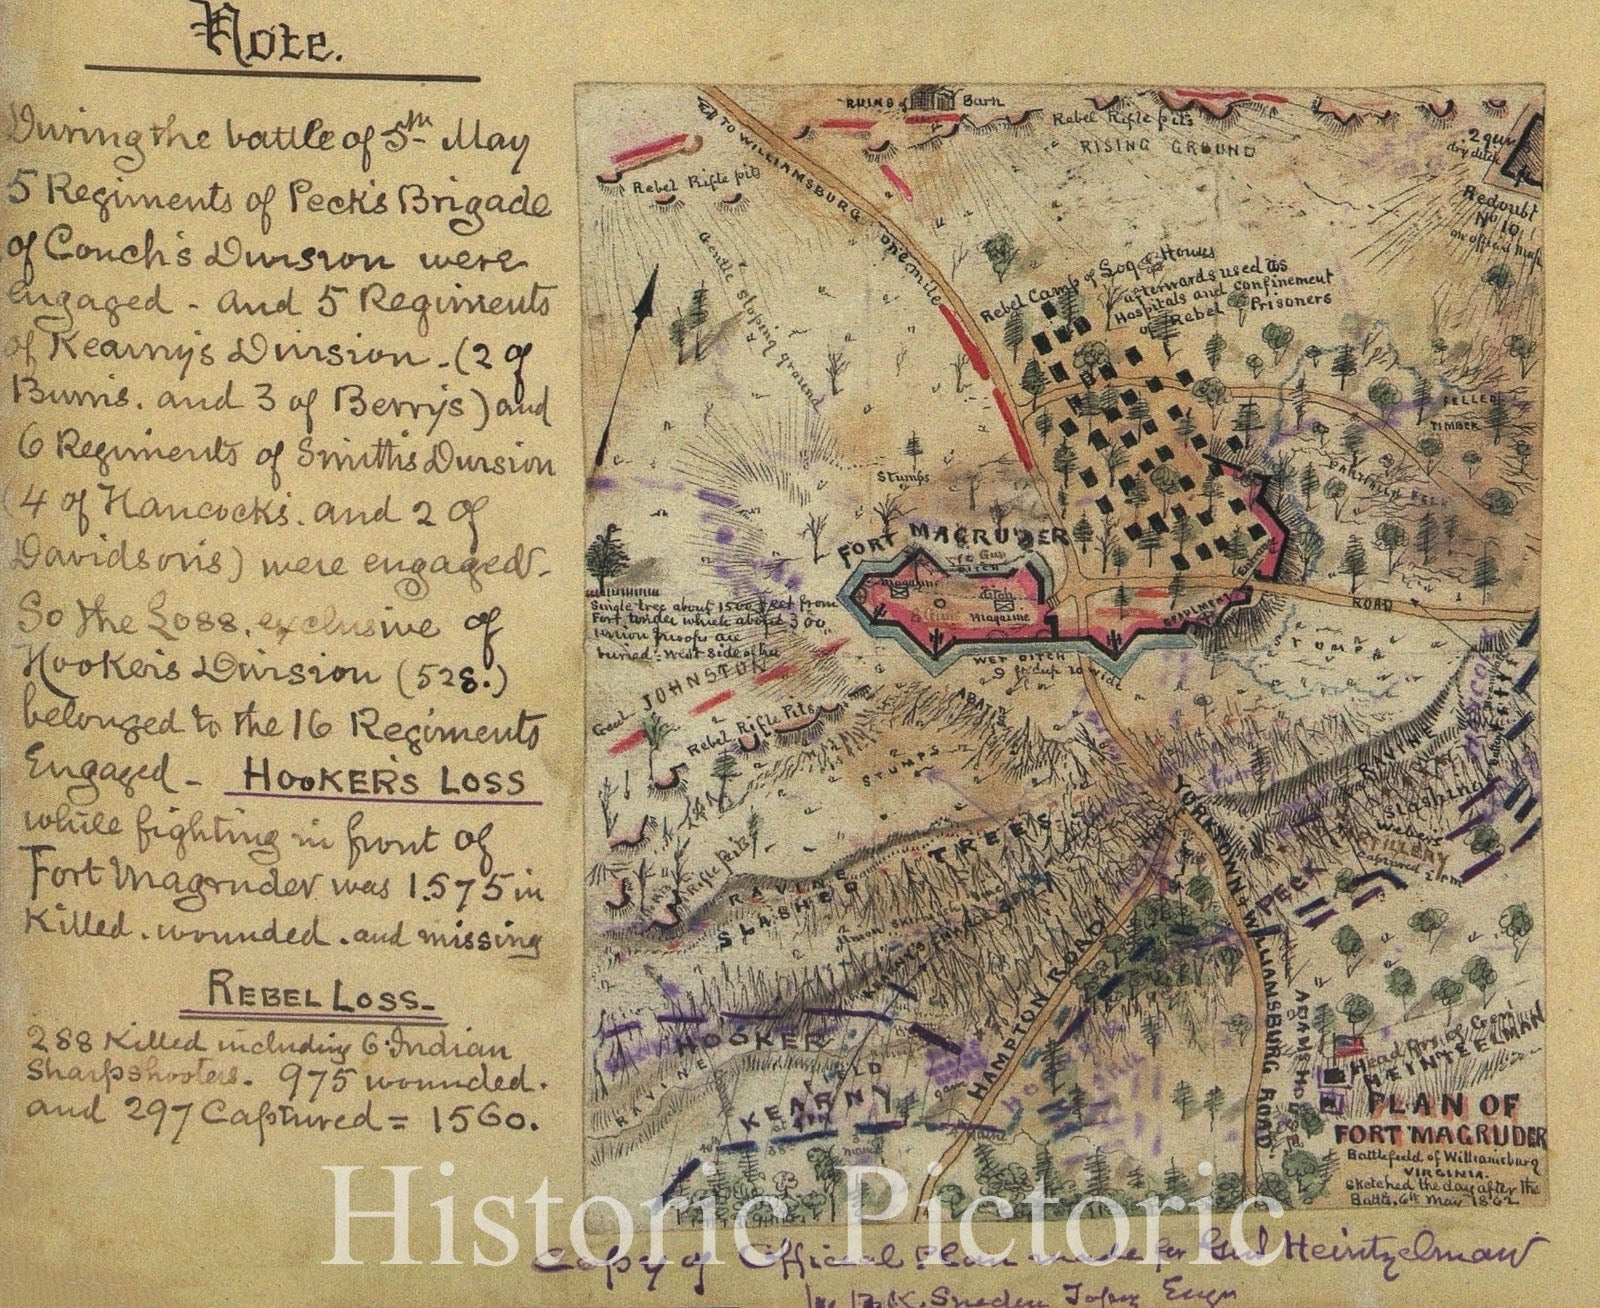 Note.
During the battle of 5th May
5 Regiments of Peck's Brigade
of Couch's Division were
engaged - and 5 Regiments
of Kearny's Division - (2 of
Birnis. and 3 of Berry's) and
6 Regiments of Smith's Division
(4 of Hancocks. and 2 of
Davidson's) were engaged.
So the Loss, exclusive of
Hooker's Division (528.)
belonged to the 16 Regiments
Engaged - HOOKER'S LOSS
while fighting in front of
Fort Magruder was 1.575 in
Killed. wounded. and missing
REBEL LOSS-
288 Killed including 6 Indian
Sharpshooters. 975 wounded.
and 297 Captured = 1560.
TO WILLIAMSBURG
one mile
RUINS of Barn
Rebel Rifle pits
RISING GROUND
2 gun
dry ditch
Redoubt
No 10
on official map
Rebel Rifle pits
Gentle sloping ground
Rebel Camp of 
Houses
afterwards used as
Hospitals and confinement
of Rebel Prisoners
FELLED
TIMBER
Stumps
FORT MAGRUDER
DITCH
magazine
ditch
magazine
Entrance
EPAULMENT
ROAD
STUMPS
WET DITCH
9 ft deep 10 wide
Single tree about 1500 feet from
Fort, under which about 300
Union troops are
buried. West side of
Genl JOHNSTON
Rebel Rifle Pits
ABATIS
STUMPS
RAVINE
Slashing
Webers
ARTILLERY
Captured
Rifle Pits
RAVINE
SLASHED TREES
YORKTOWN & WILLIAMSBURG ROAD.
PECK
HAMPTON ROAD
HOOKER
RAVINE
FIELD
KEARNY
ADAMS HOUSE
Head Qrs of Genl
HEINTZELMAN
PLAN OF
FORT MAGRUDER
Battlefield of Williamsburg
VIRGINIA.
Sketched the day after the
Battle. 6th May 1862
Copy of Official Plan made for Genl Heintzelman
by R.K. Sneden Topog Engr
Historic Pictoric